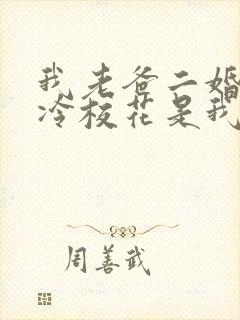 我老爸二婚
冷校花是我
周善武